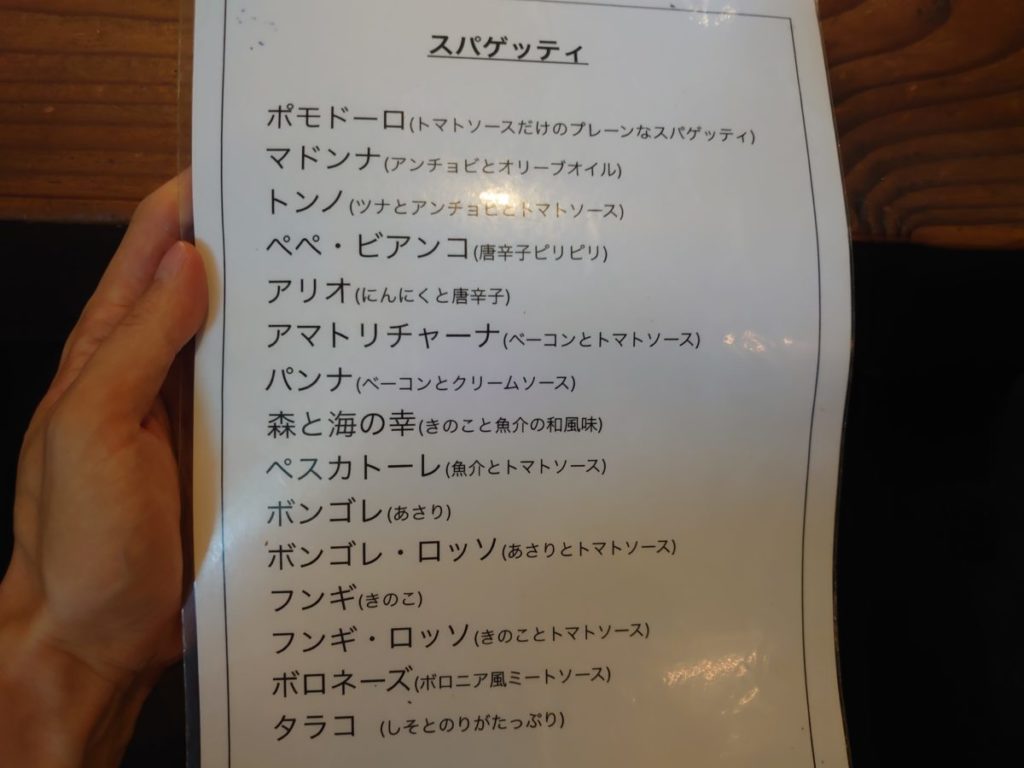 スパゲッティ
ポモドーロ(トマトソースだけのプレーンなスパゲッティ)
マドンナ(アンチョビとオリーブオイル)
トンノ(ツナとアンチョビとトマトソース)
ペペ・ビアンコ(唐辛子ピリピリ)
アリオ(にんにくと唐辛子)
アマトリチャーナ(ベーコンとトマトソース)
パンナ(ベーコンとクリームソース)
森と海の幸(きのこと魚介の和風味)
ペスカトーレ(魚介とトマトソース)
ボンゴレ(あさり)
ボンゴレ・ロッソ(あさりとトマトソース)
フンギ(きのこ)
フンギ・ロッソ(きのことトマトソース)
ボロネーズ(ボロニア風ミートソース)
タラコ (しそとのりがたっぷり)